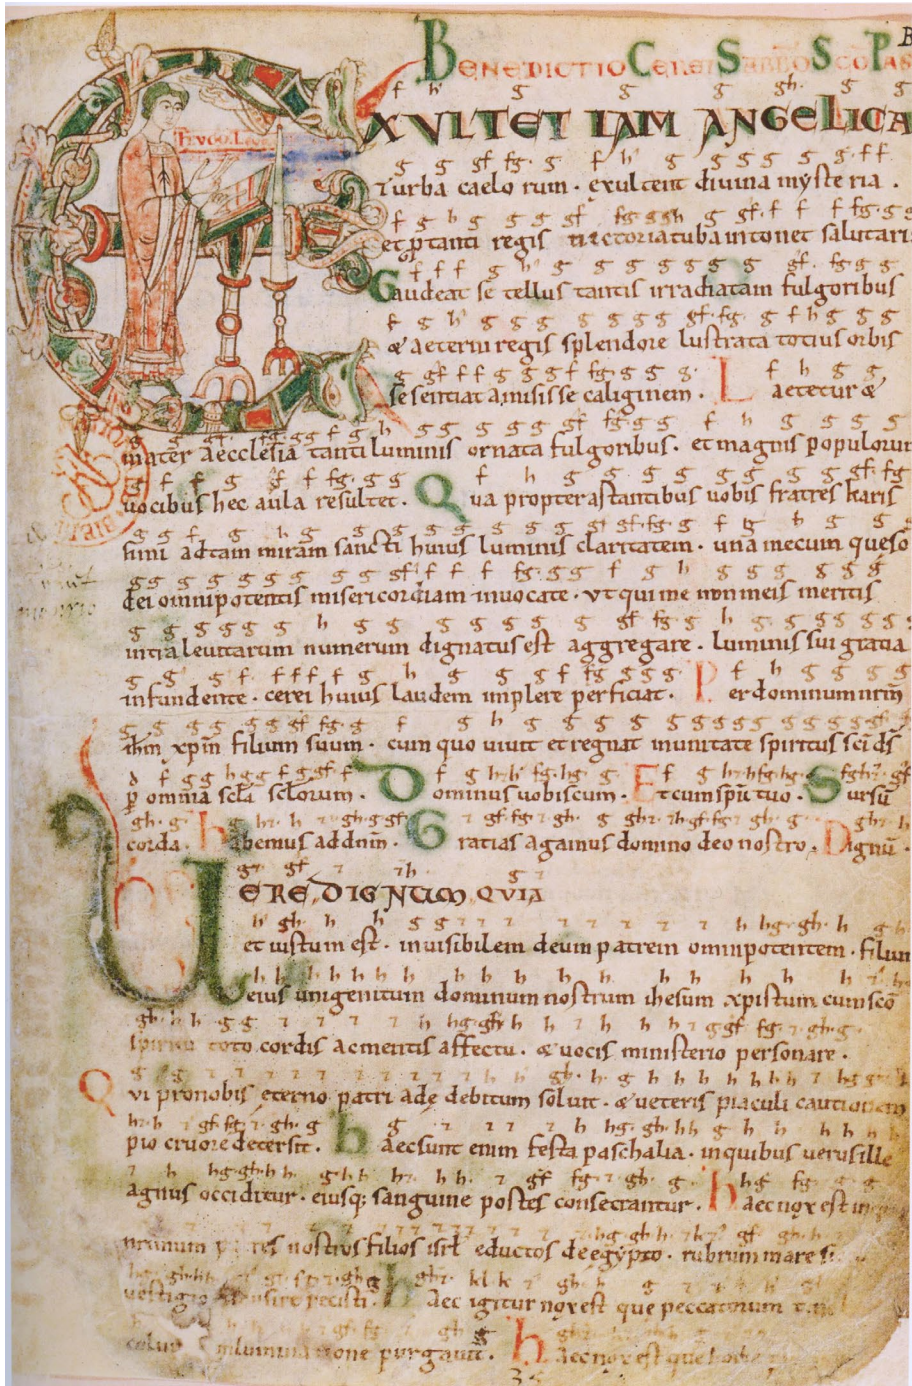 BENEDICTIO CEREI
EXVLTET IAM ANGELICA
Turba caelorum · exultent diuina mysteria .
et p tanti regis uictoria tuba intonet salutaris
Gaudeat se tellus tantis irradiatam fulgoribus
& aeterni regis splendore lustrata totius orbis
se sentiat amisisse caliginem . Laetetur &
mater aecclesia tanti luminis ornata fulgoribus . et magnis populorum
uocibus hec aula resultet . Qua propter astantibus uobis fratres karis
simi ad tam miram sancti huius luminis claritatem . una mecum queso
dei omnipotentis misericordiam inuocate . vt qui me non meis meritis
intra leuitarum numerum dignatus est aggregare . luminis sui gratia
infundente . cerei huius laudem implere perficiat . Per dominum nrm
ihm xpm filium suum . cum quo uiuit et regnat in unitate spiritus sci ds
p omnia scla sclorum . Dominus uobiscum . Et cum spu tuo . Sursu
corda . habemus ad dnm . Gratias agamus domino deo nostro . Dignu .
UERE DIGNUM QVIA
et iustum est . inuisibilem deum patrem omnipotentem . filium
eius unigenitum dominum nostrum ihesum xpistum cum sco
spiritu toto cordis ac mentis affectu . & uocis ministerio personare .
Qvi pro nobis eterno patri ade debitum soluit . & ueteris piaculi cautionem
pio cruore detersit . haec sunt enim festa paschalia . in quibus uerus ille
agnus occiditur . eiusq; sanguine postes consecrantur . haec nox est in
nostros filios isrl eductos de egypto . rubrum mare
uestigio fecisti . haec igitur nox est que peccatorum
purgauit . haec nox est que hodie